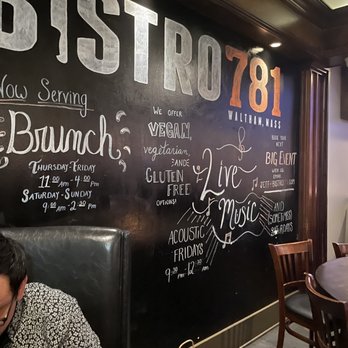 BISTRO 781
WALTHAM, MASS
Now Serving
Brunch
THURSDAY-FRIDAY
11:00 AM - 4:00 PM
SATURDAY-SUNDAY
9:30 AM - 2:30 PM
WE OFFER
VEGAN,
vegetarian,
AND
GLUTEN
FREE
OPTIONS!
Live
Music
ACOUSTIC
FRIDAYS
9:30 PM - 12:30 AM
YOUR NEXT
BIG EVENT
WITH US
AND
SOMETIMES